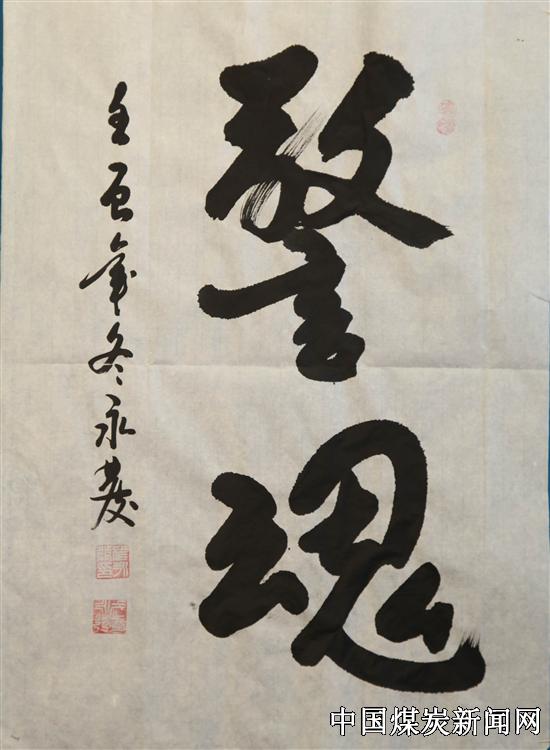 警魂
壬寅年冬永
中国煤炭新闻网